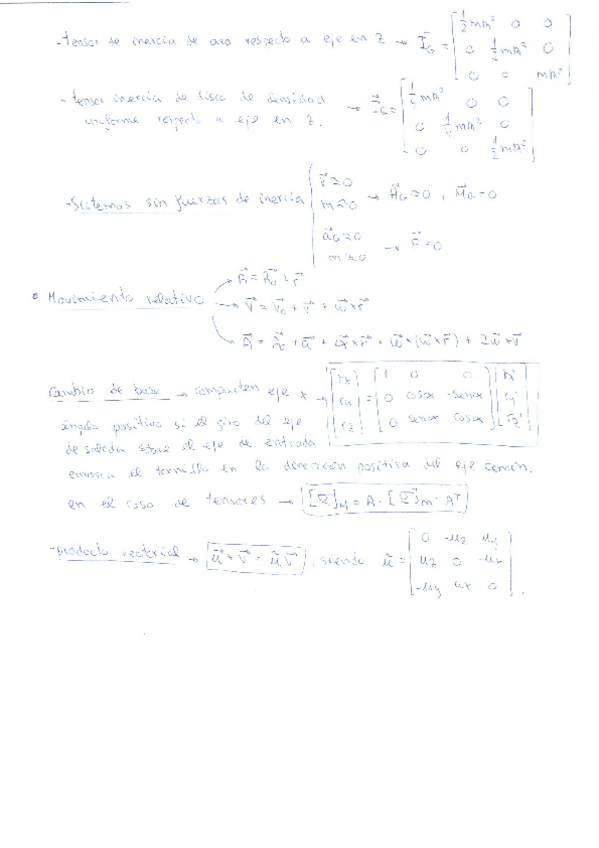 - tensor de inercia de aro respecto a eje en Z → I_G = [ ½mR² 0 0 ; 0 ½mR² 0 ; 0 0 mR² ]
- tensor inercia de disco de densidad uniforme respecto a eje en Z. → I_G = [ ¼mR² 0 0 ; 0 ¼mR² 0 ; 0 0 ½mR² ]
- Sistemas sin fuerzas de inercia { v≃0, m≃0 → H_G≃0, M_G=0
a_G≃0, m≃0 → =0
• Movimiento relativo
→ V = V₀ + v + ω×r
→ A = A₀ + a + α×r + ω×(ω×r) + 2ω×v
Cambio de base → comparten eje x → [ rx ; ry ; rz ] = [ 1 0 0 ; 0 cosα -senα ; 0 senα cosα ] [ rx' ; ry' ; rz' ]
ángulo positivo si el giro del eje
de salida sobre el eje de entrada
el tornillo en la dirección positiva del eje común.
en el caso de tensores → = A · · Aᵀ
- producto vectorial → u×v = ũ v, siendo ũ = [ 0 -uz uy ; uz 0 -ux ; -uy ux 0 ].